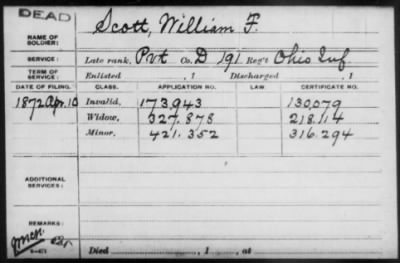 DEAD
NAME OF SOLDIER: Scott, William F.
SERVICE: Late rank, Pvt Co. D 191 Reg't Ohio Inf
TERM OF SERVICE: Enlisted , 1 Discharged , 1
DATE OF FILING. CLASS. APPLICATION NO. CERTIFICATE NO. LAW.
1872 Apr. 10 Invalid, 173,943 130,079
Widow, 327.878 218,114
Minor, 421.352 316.294
ADDITIONAL SERVICES:
REMARKS:
Died , 1 , at